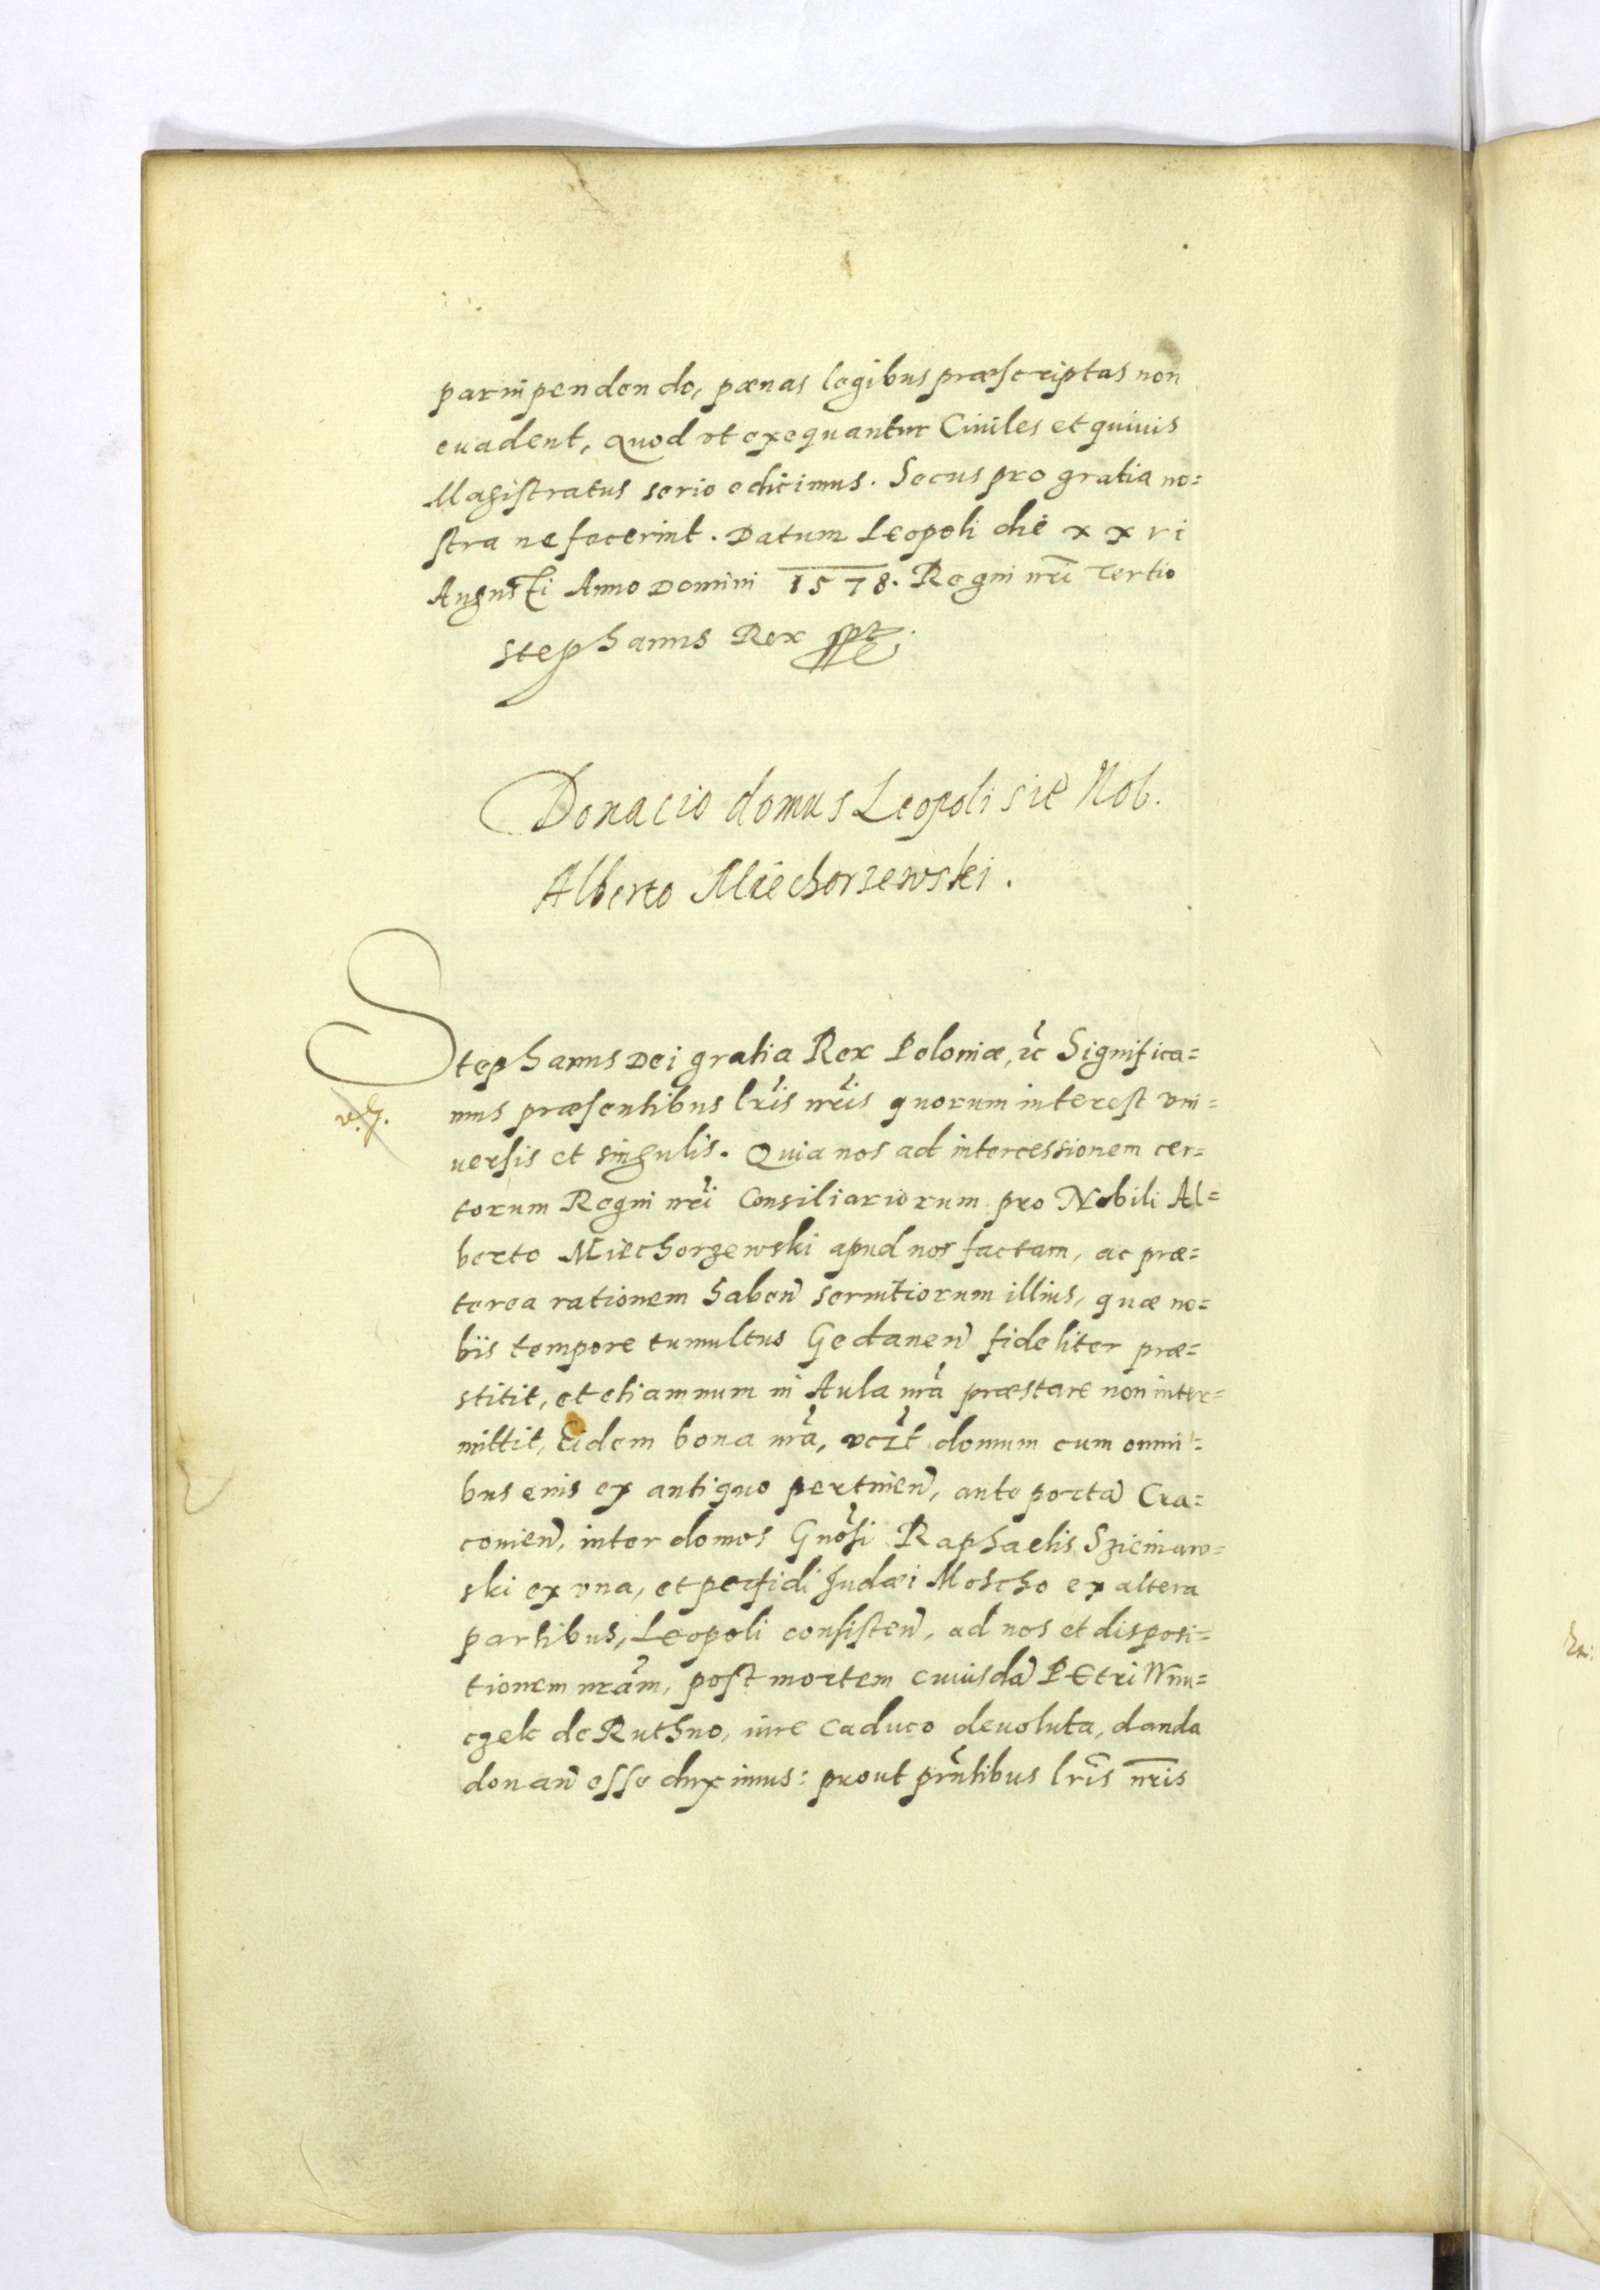 parvipendendo, pœnas legibus præscriptas non
euadent, Quod vt exequantur Ciuiles et quiuis
Magistratus serio edicimus. Secus pro gratia no=
stra ne fecerint. Datum Leopoli die xxvi
Augusti Anno Domini 1578. Regni nri Tertio
Stephanus Rex
Donacio domus Leopoli sitæ Nob.
Alberto Miechorzewski.
Stephanus Dei gratia Rex Poloniæ, ꝛc Significa=
mus præsentibus lris nris quorum interest vni=
uersis et singulis. Quia nos ad intercessionem cer=
torum Regni nri Consiliariorum pro Nobili Al=
berto Miechorzewski apud nos factam, ac præ=
terea rationem haben seruitiorum illius, quæ no=
bis tempore tumultus Gedanen fideliter præ=
stitit, et etiamnum in Aula nra præstare non inter=
mittit, Eidem bona nra, vczt domum cum omni=
bus eius ex antiquo pertinen, ante porta Cra=
couien, inter domos Gnosi Raphaelis Szieniaw=
ski ex vna, et perfidi Judæi Moscho ex altera
partibus, Leopoli consisten, ad nos et disposi=
tionem nram, post mortem cuiusda Petri Wnu=
czek de Ruthno, iure caduco deuoluta, danda
donan esse duximus: prout prntibus lris nris